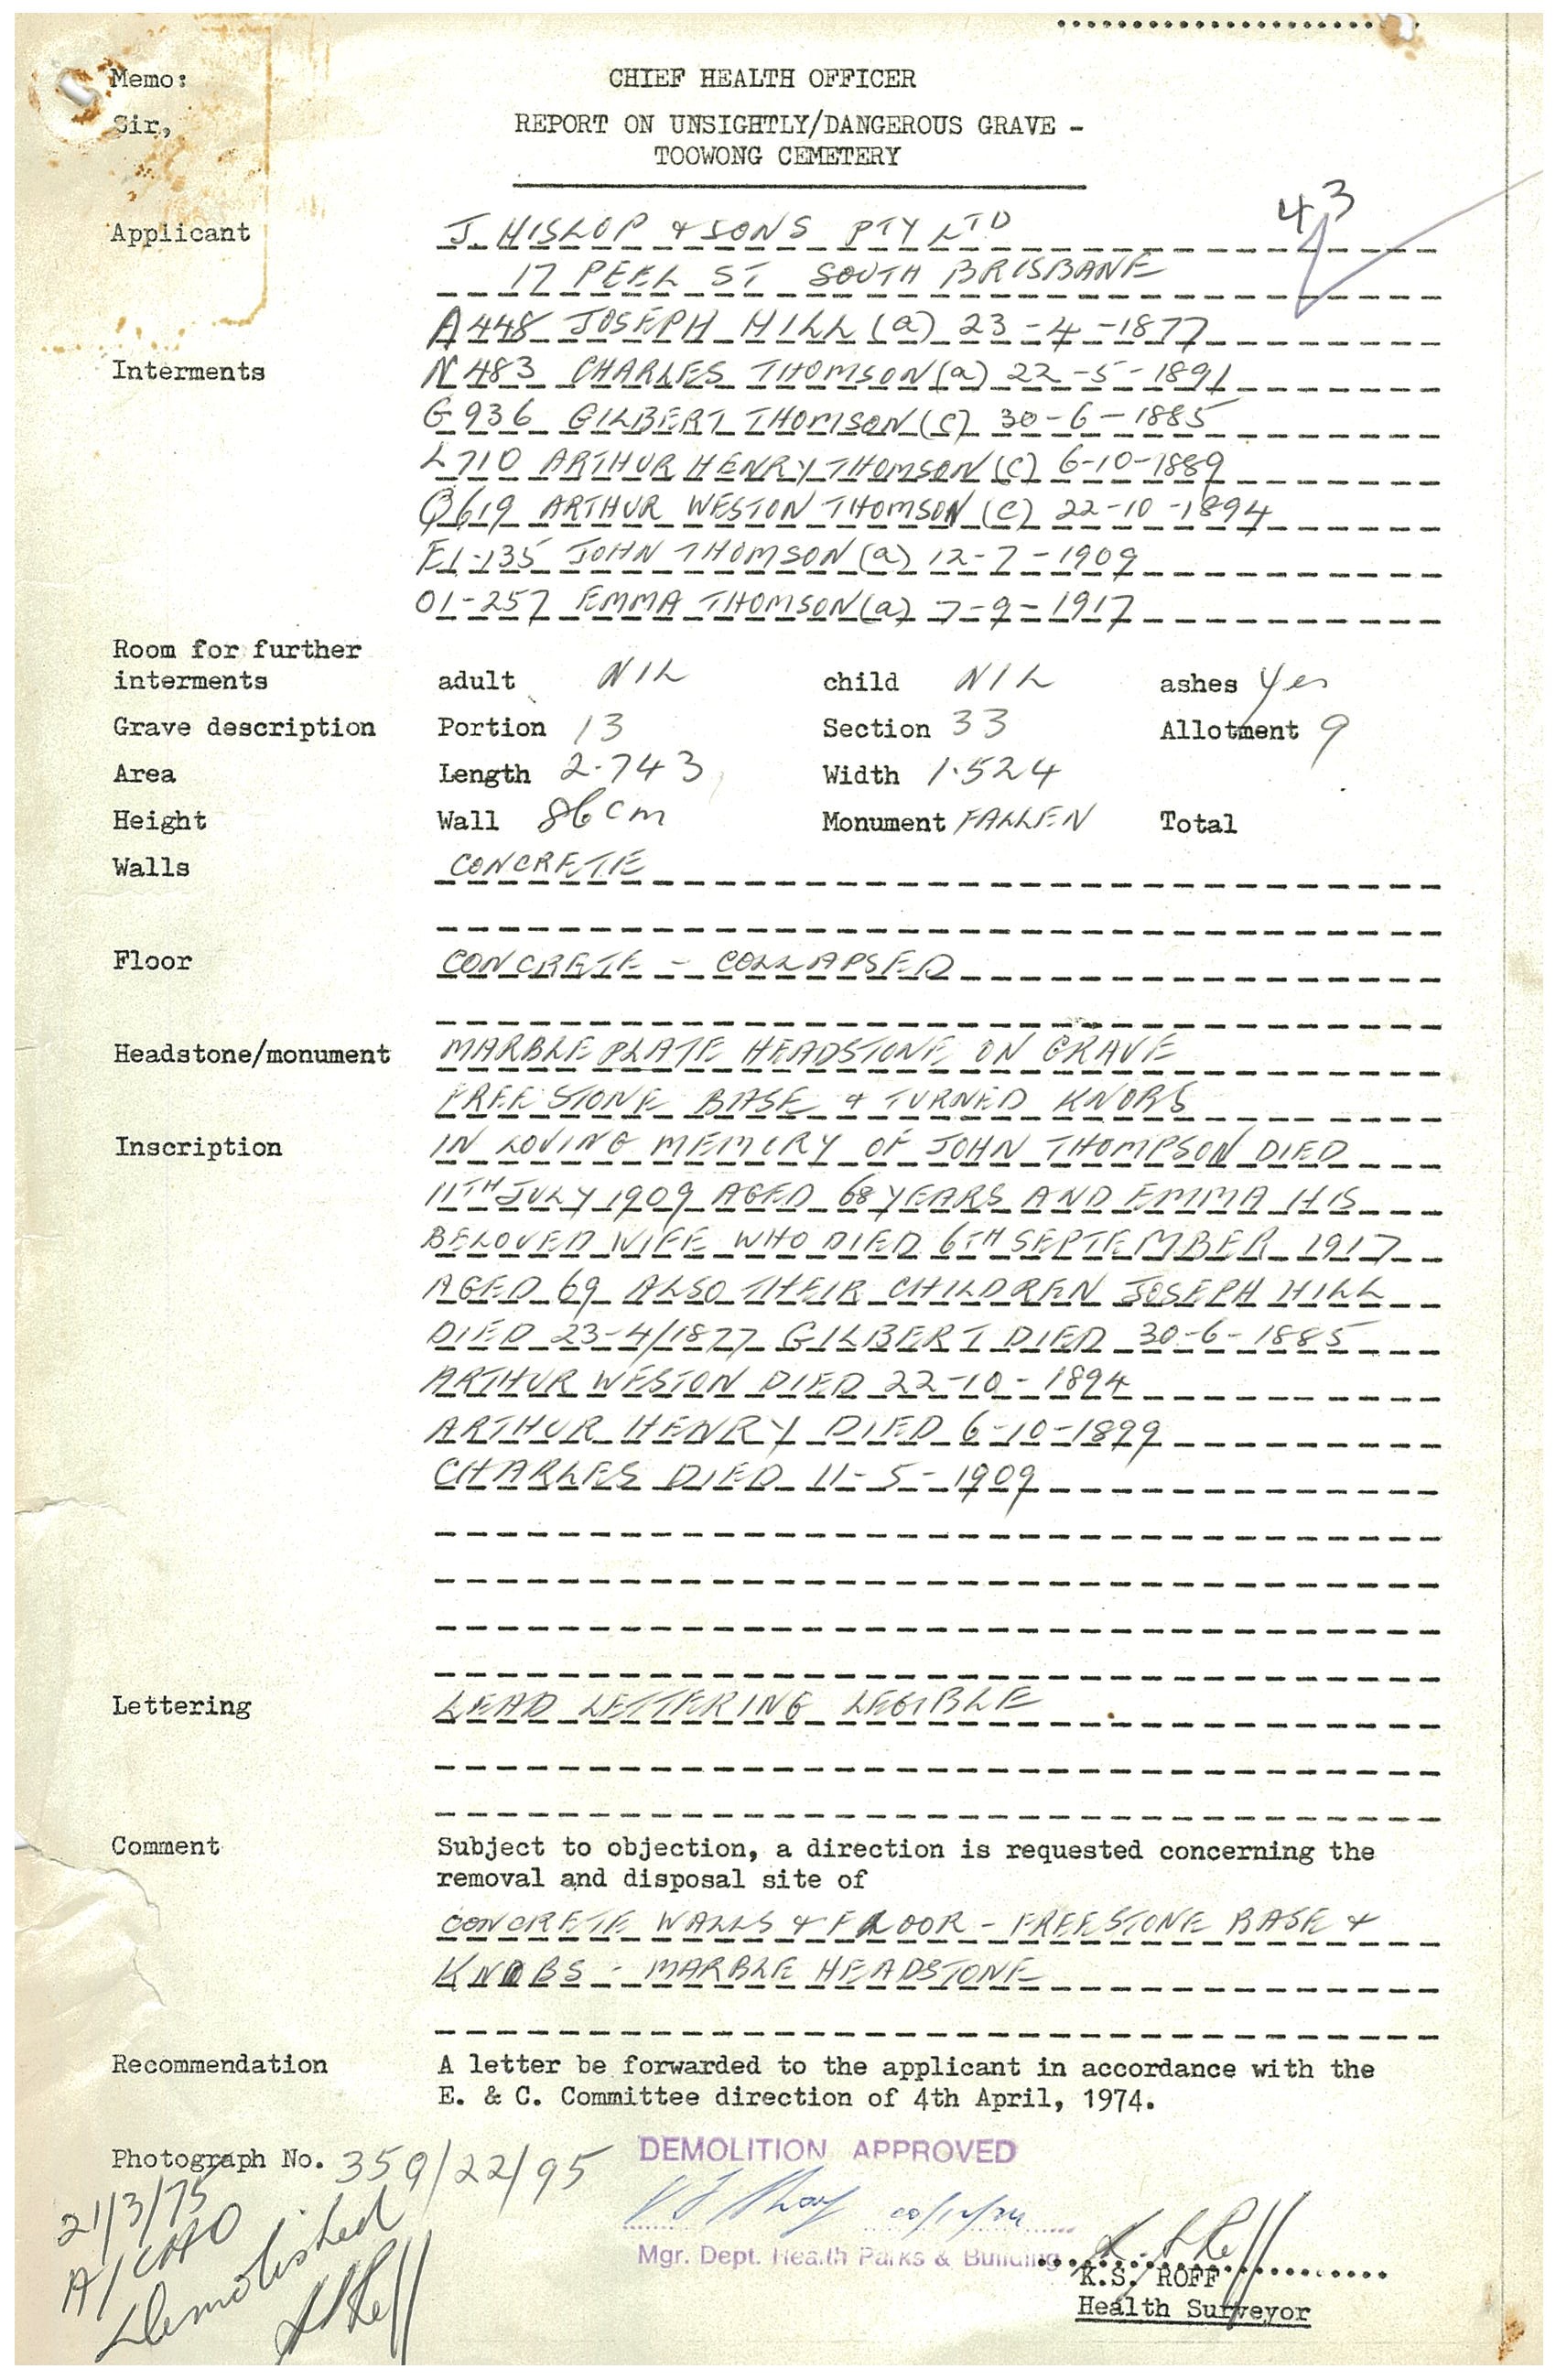 Memo:
CHIEF HEALTH OFFICER
Sir,
REPORT ON UNSIGHTLY/DANGEROUS GRAVE -
TOOWONG CEMETERY
43
Applicant J. HISLOP & SONS PTY LTD
17 PEEL ST SOUTH BRISBANE
A448 JOSEPH HILL (a) 23-4-1877
Interments N483 CHARLES THOMSON (a) 22-5-1891
G936 GILBERT THOMSON (C) 30-6-1885
L710 ARTHUR HENRY THOMSON (C) 6-10-1889
Q619 ARTHUR WESTON THOMSON (C) 22-10-1894
E1-135 JOHN THOMSON (a) 12-7-1909
01-257 EMMA THOMSON (a) 7-9-1917
Room for further
interments adult NIL child NIL ashes Yes
Grave description Portion 13 Section 33 Allotment 9
Area Length 2.743 Width 1.524
Height Wall 86cm Monument FALLEN Total
Walls CONCRETE
Floor CONCRETE - COLLAPSED
Headstone/monument MARBLE PLATE HEADSTONE ON GRAVE
FREESTONE BASE & TURNED KNOBS
Inscription IN LOVING MEMORY OF JOHN THOMPSON DIED
11TH JULY 1909 AGED 68 YEARS AND EMMA HIS
BELOVED WIFE WHO DIED 6TH SEPTEMBER 1917
AGED 69 ALSO THEIR CHILDREN JOSEPH HILL
DIED 23-4/1877 GILBERT DIED 30-6-1885
ARTHUR WESTON DIED 22-10-1894
ARTHUR HENRY DIED 6-10-1899
CHARLES DIED 11-5-1909
Lettering LEAD LETTERING LEGIBLE
Comment Subject to objection, a direction is requested concerning the
removal and disposal site of
CONCRETE WALLS & FLOOR - FREESTONE BASE &
KNOBS - MARBLE HEADSTONE
Recommendation A letter be forwarded to the applicant in accordance with the
E. & C. Committee direction of 4th April, 1974.
Photograph No. 359/22/95
DEMOLITION APPROVED
21/3/75
A/CHO
Demolished
Mgr. Dept. Health Parks & Building
K.S. ROFF
Health Surveyor